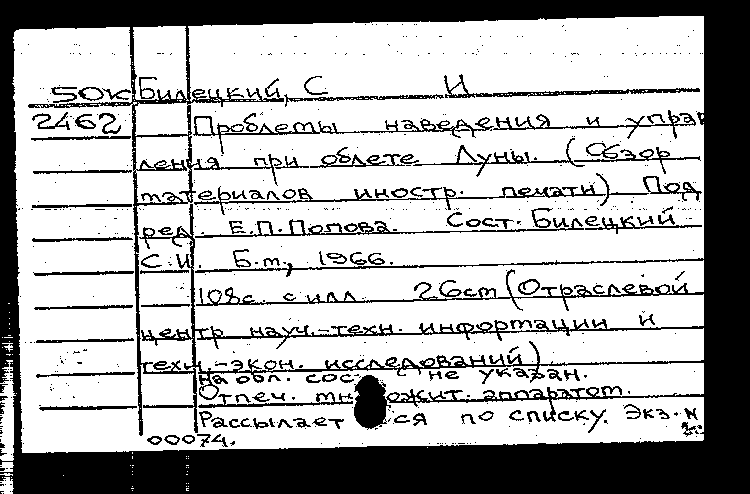 50к Билецкий, С И
2462 Проблемы наведения и управ
ления при облете Луны. (Обзор
материалов иностр. печати) Под
ред. Е.П.Попова. Сост. Билецкий
С.И. Б.м., 1966.
108с. с илл 26см (Отраслевой
центр науч.-техн. информации и
техн.-экон. исследований)
На обл. сост. не указан.
Отпеч. множит. аппаратом.
Рассылает ся по списку. Экз. N
00074.